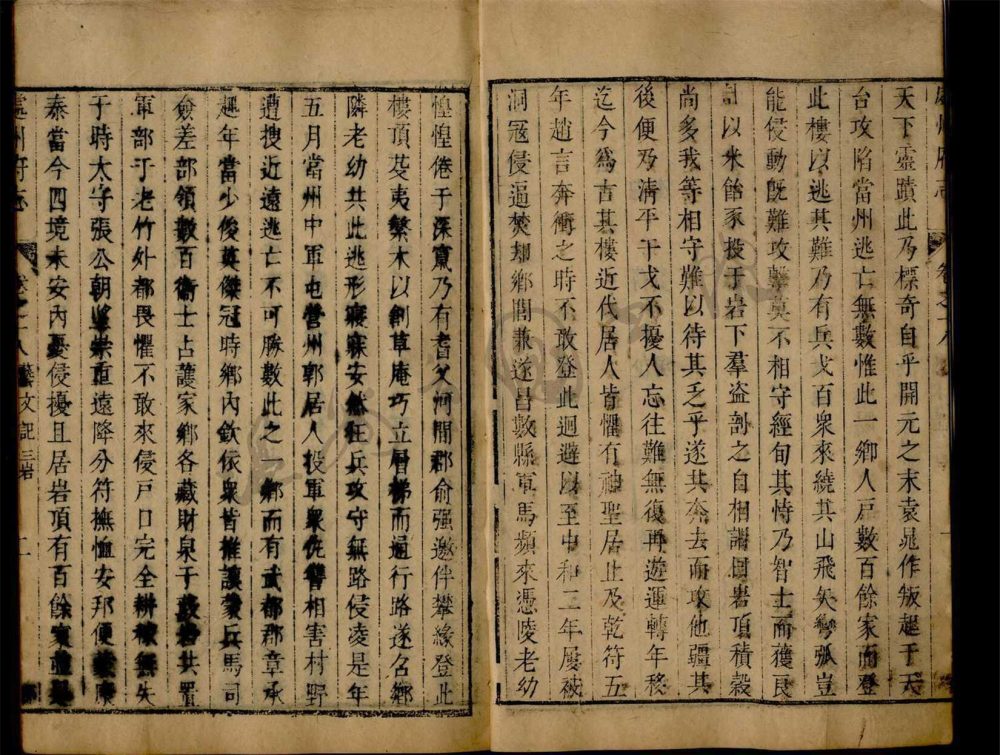 天下靈蹟此乃標奇自乎開元之末袁晁作叛起于天
台攻陷當州逃亡無數惟此一鄉人戶數百餘家而登
此樓以逃其難乃有兵戈百衆來繞其山飛矢彎弧豈
能侵動旣難攻擊莫不相守經旬其時乃智士而獲良
計以米飴豕投于岩下羣盜剖之自相謂曰岩頂積穀
尚多我等相守難以待其乏乎遂其奔去而攻他疆其
後便乃清平干戈不擾人忘往難無復再遊運轉年移
迄今爲吉其樓近代居人皆懼有神聖居止及乾符五
年趙言奔衝之時不敢登此迴避以至中和二年屢被
洞寇侵逼焚却鄉閭兼遂昌數縣軍馬頻來憑陵老幼
惶惶倦于深竄乃有耆父河間郡俞强邀伴攀緣登此
樓頂芟夷繁木以創草庵巧立層梯而通行路遂名鄉
隣老幼共此逃形寢寐安然狂兵攻守無路侵凌是年
五月當州中軍屯營州郭居人投軍衆仇讐相害村野
遭搜近遠逃亡不可勝數此之一鄉而有武都郡章承
趣年當少後英傑冠時鄉內欽依衆皆推讓蒙兵馬司
僉差部領數百衛士占護家鄉各藏財泉于共置
軍部于老竹外都畏懼不敢來侵戶口完全無失
于時太守張公朝重遠降分符撫恤安邦便
泰當今四境未安內憂侵擾且居岩頂有百餘
處州府志 卷之十八 藝文記 三岩 二